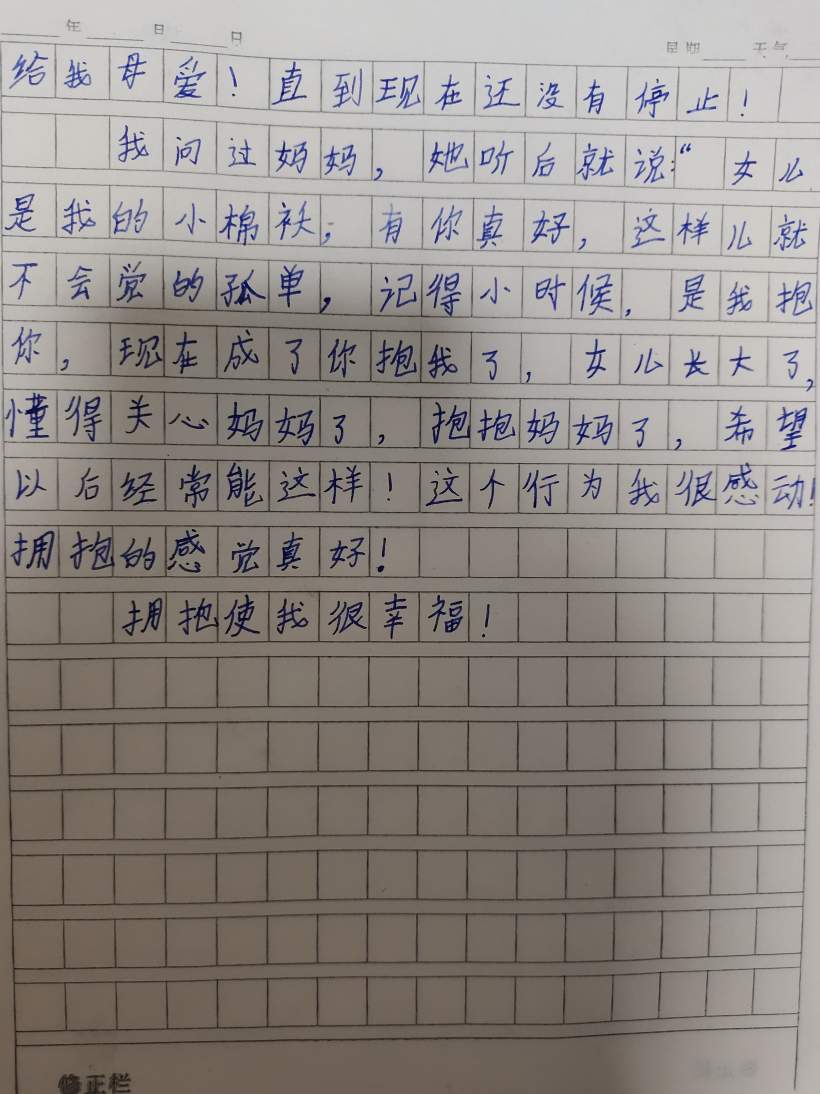 年 日 日
星期 天气
给我母爱！直到现在还没有停止！
我问过妈妈，她听后就说：“女儿
是我的小棉袄；有你真好，这样儿就
不会觉的孤单，记得小时候，是我抱
你，现在成了你抱我了，女儿长大了，
懂得关心妈妈了，抱抱妈妈了，希望
以后经常能这样！这个行为我很感动！
拥抱的感觉真好！
拥抱使我很幸福！
修正栏